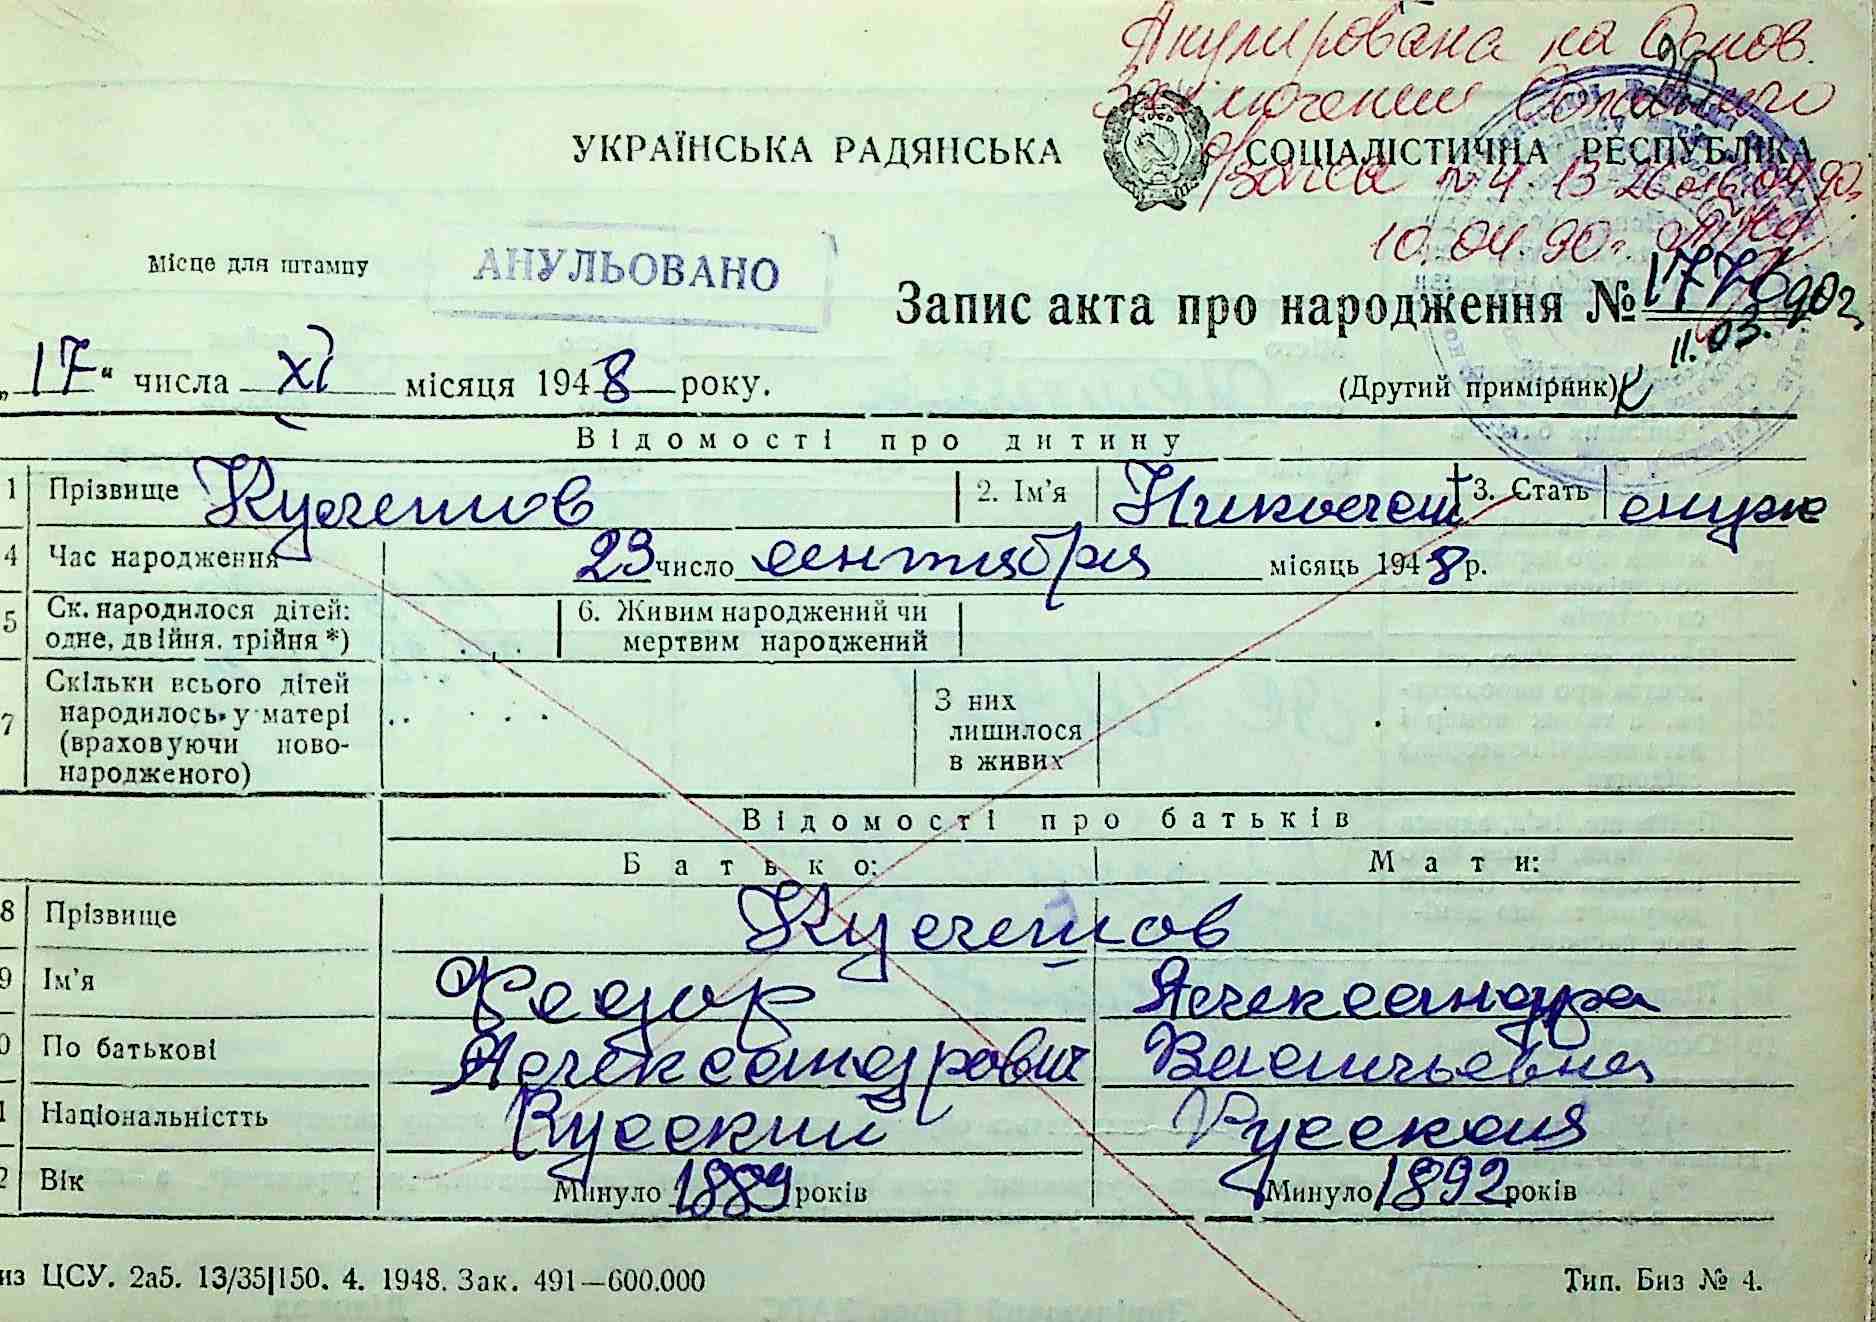 Анулирована на Основ.
Заключении Областного
Загса № 4 13-26 от 09.04.90г.
10.04.90г.
УКРАЇНСЬКА РАДЯНСЬКА СОЦІАЛІСТИЧНА РЕСПУБЛІКА
Місце для штампу
АНУЛЬОВАНО
Запис акта про народження № 1776
11.03.90г.
„17“ числа XI місяця 1948 року.
(Другий примірник)
Відомості про дитину
1 Прізвище Кулешов 2. Ім’я Николай 3. Стать муж
4 Час народження 23 число сентября місяць 1948 р.
5 Ск. народилося дітей: одне, двійня, трійня *) 6. Живим народжений чи мертвим народжений
7 Скільки всього дітей народилось у матері (враховуючи ново-народженого) З них лишилося в живих
Відомості про батьків
Батько: Мати:
8 Прізвище Кулешов
9 Ім’я Федор Александра
0 По батькові Александрович Васильевна
1 Національністть Русский Русская
2 Вік Минуло 1889 років Минуло 1892 років
из ЦСУ. 2а5. 13/35|150. 4. 1948. Зак. 491—600.000
Тип. Биз № 4.